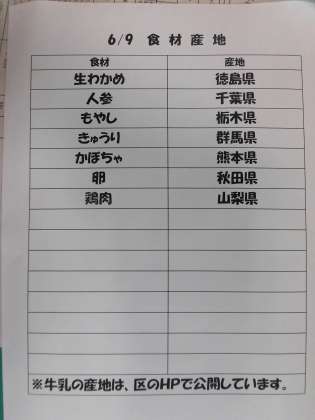 6/9 食材産地
食材 産地
生わかめ 徳島県
人参 千葉県
もやし 栃木県
きゅうり 群馬県
かぼちゃ 熊本県
卵 秋田県
鶏肉 山梨県
※牛乳の産地は、区のHPで公開しています。